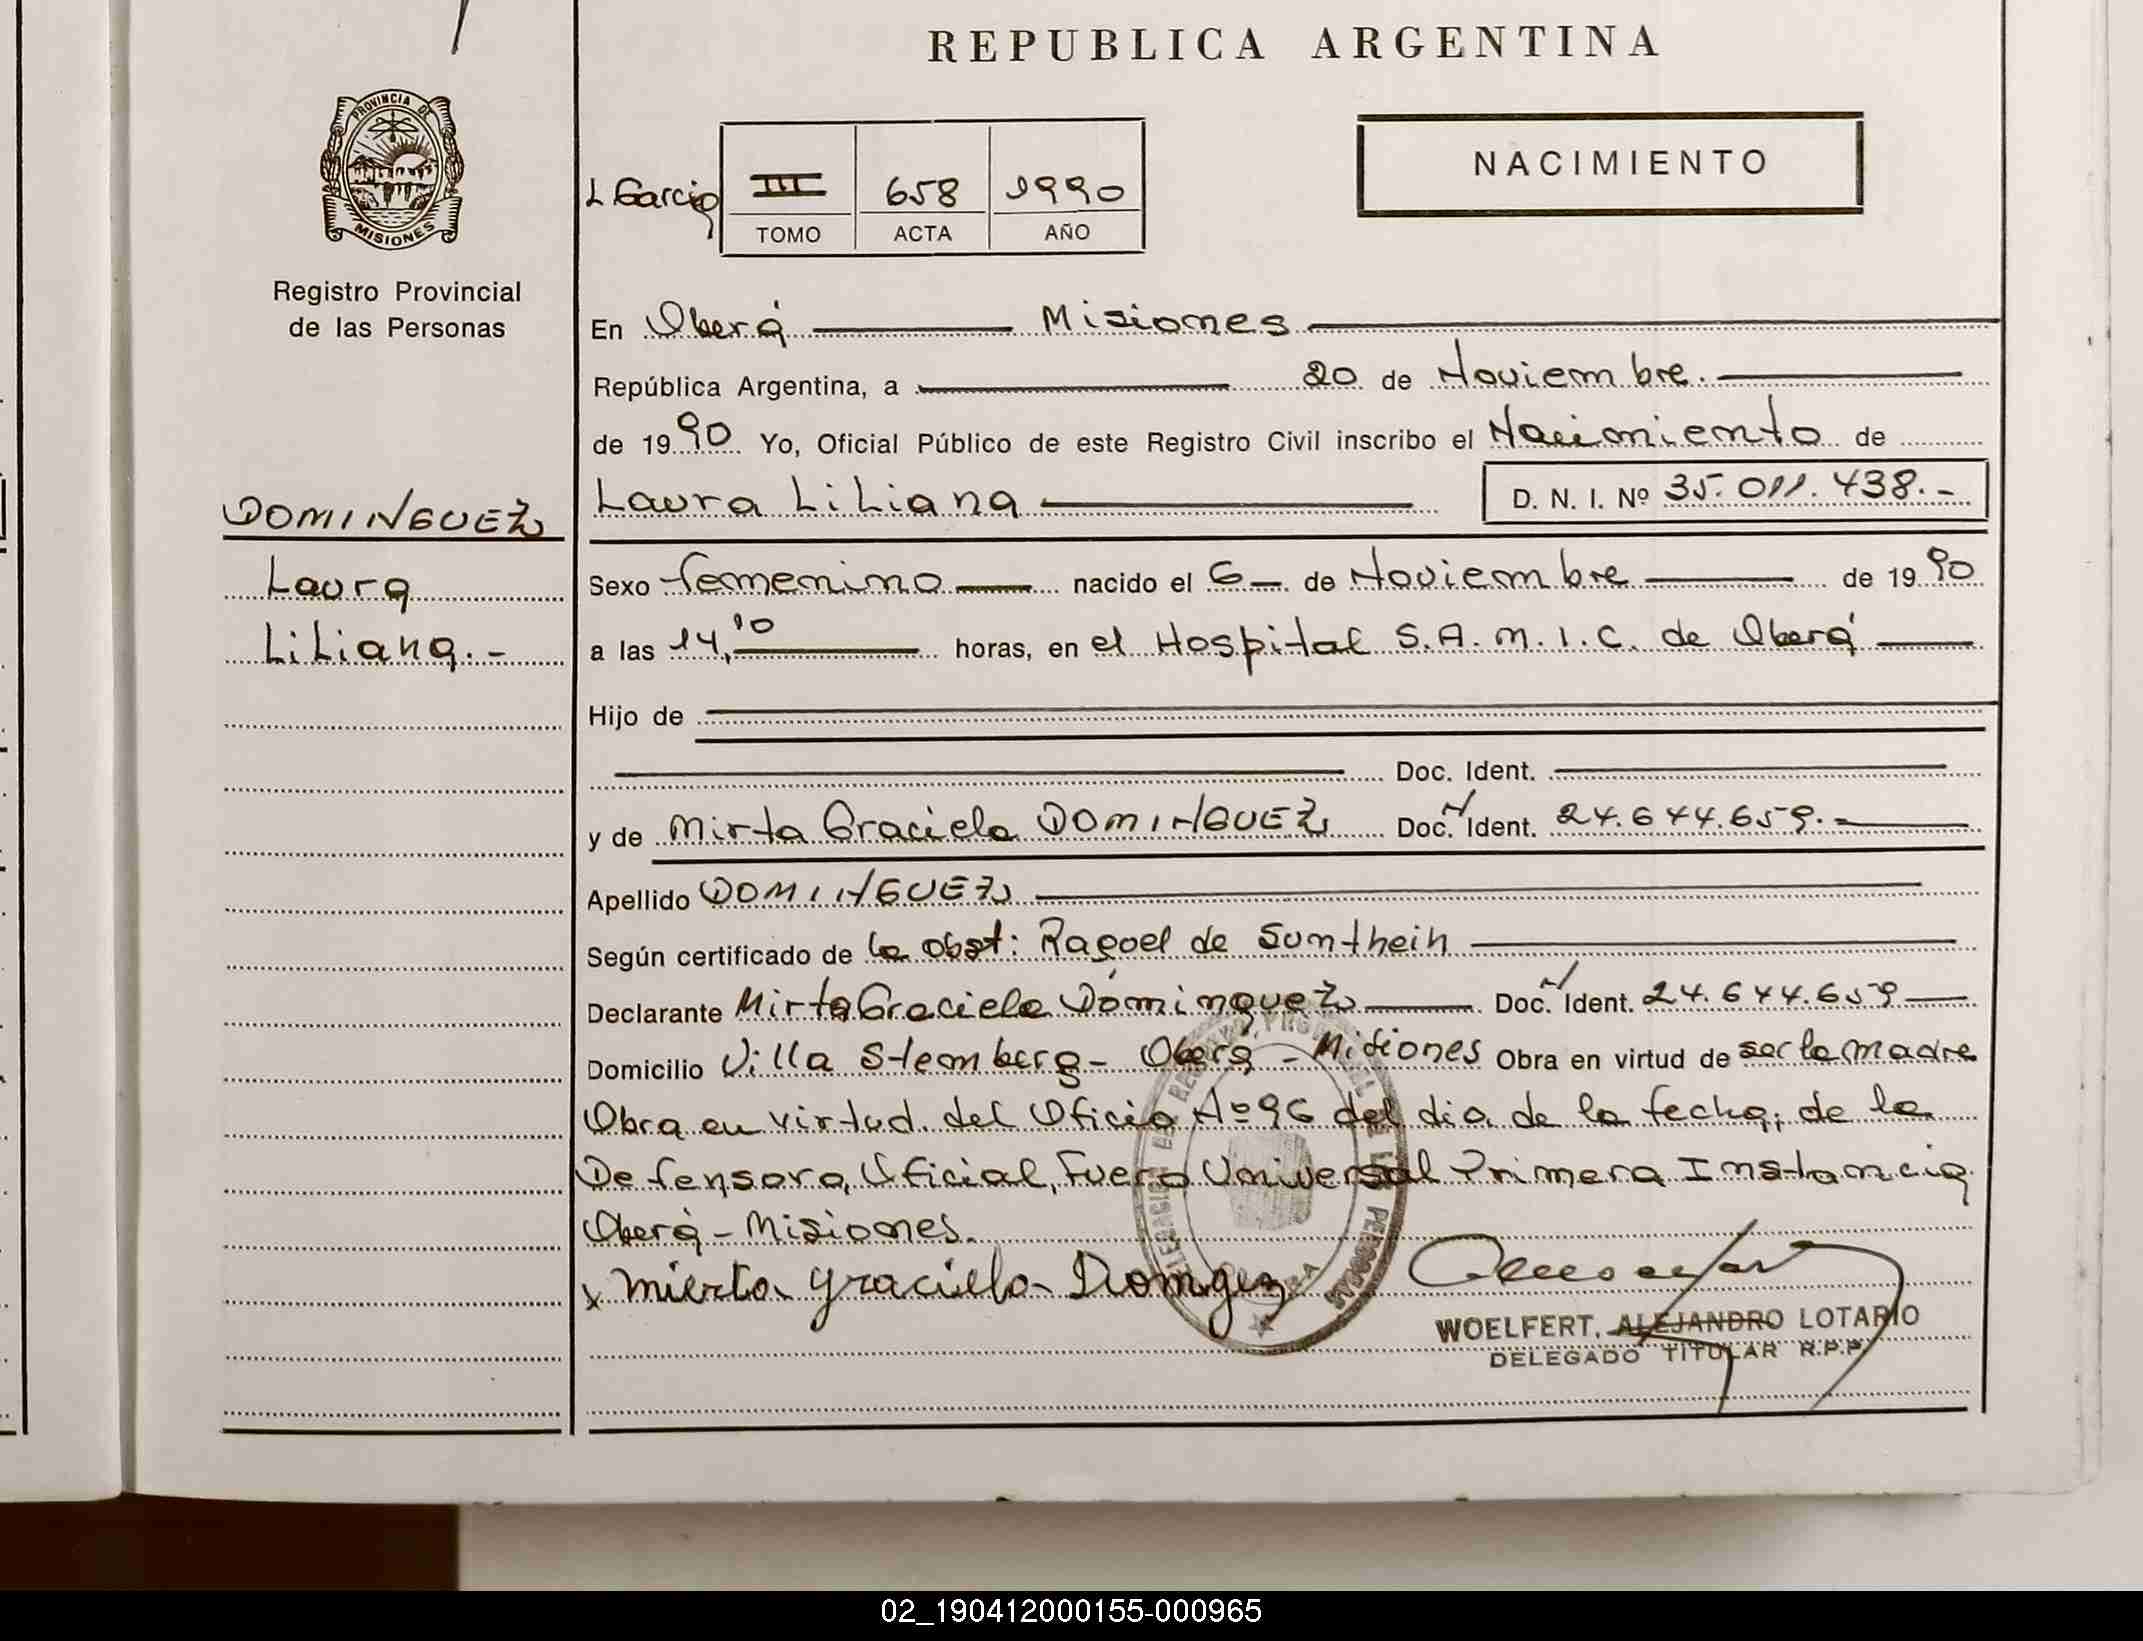 REPUBLICA ARGENTINA
PROVINCIA DE
MISIONES
Registro Provincial
de las Personas
NACIMIENTO
L Garcia
III 658 1990
TOMO ACTA AÑO
En Oberá Misiones
República Argentina, a 20 de Noviembre.
de 1990 Yo, Oficial Público de este Registro Civil inscribo el Nacimiento de
Laura Liliana D. N. I. Nº 35.011.438.-
DOMINGUEZ
Laura
Liliana.-
Sexo femenino nacido el 6 de Noviembre de 1990
a las 14,10 horas, en el Hospital S.A.M.I.C. de Oberá
Hijo de
Doc. Ident.
y de Mirta Graciela DOMINGUEZ Doc. Ident. 24.644.659.-
Apellido DOMINGUEZ
Según certificado de la obst: Raquel de Sunthein
Declarante Mirta Graciela Dominguez Doc. Ident. 24.644.659
Domicilio Villa Stemberg - Oberá - Misiones Obra en virtud de ser la madre
Obra en virtud del Oficio Nº 96 del dia de la fecha, de la
Defensora Oficial, Fuero Universal Primera Instancia
Oberá - Misiones.
x Mierta graciela Domgez
WOELFERT, ALEJANDRO LOTARIO
DELEGADO TITULAR R.P.P.
02_190412000155-000965